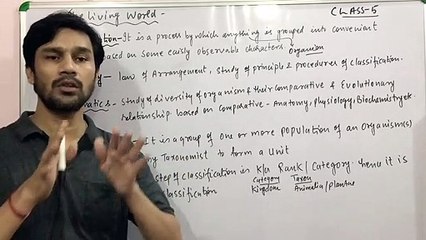 Living World - CLASS-5
It is a process by which anything is grouped into convenient
based on some easily observable characters Organism
law of Arrangement, Study of principle & procedures of classification.
Study of diversity of organism & their comparative & Evolutionary
relationship based on comparative - Anatomy, Physiology, Biochemistry etc
It is a group of one or more population of an Organism(s)
by Taxonomist to form a Unit
step of classification is k/a Rank/Category. hence it is
Category Taxon
classification Kingdom Animalia/plantae